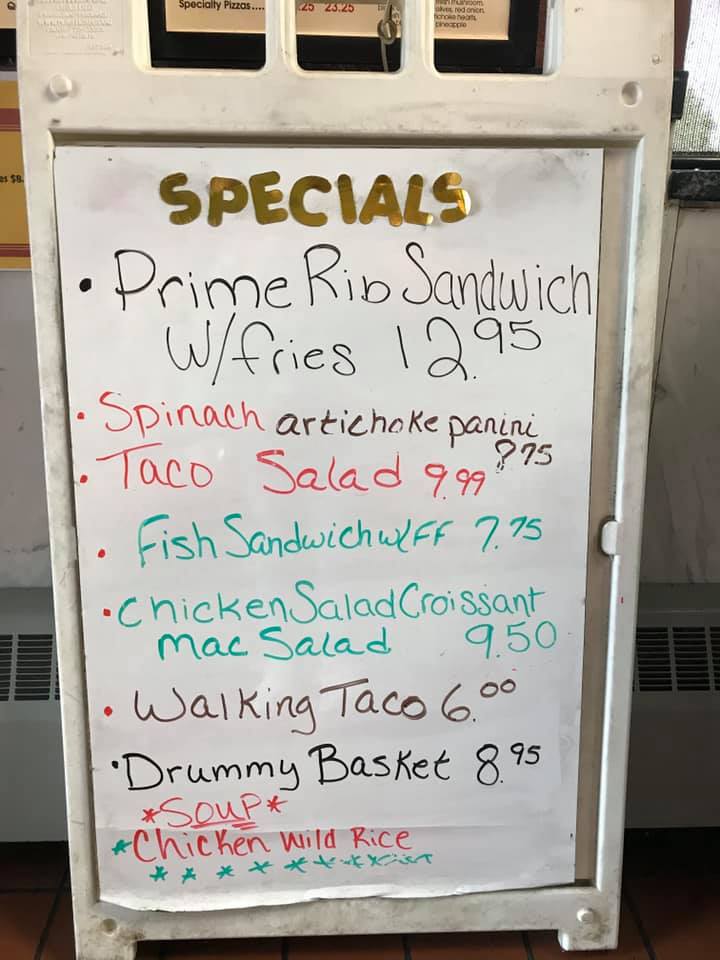 Specialty Pizzas.... .25 23.25
olives, red onion,
pineapple
es $8.
SPECIALS
• Prime Rib Sandwich
W/fries 12.95
• Spinach artichoke panini
775
• Taco Salad 9.99
• Fish Sandwich w/FF 7.75
• Chicken Salad Croissant
Mac Salad 9.50
• Walking Taco 6.00
• Drummy Basket 8.95
*SOUP*
*Chicken Wild Rice